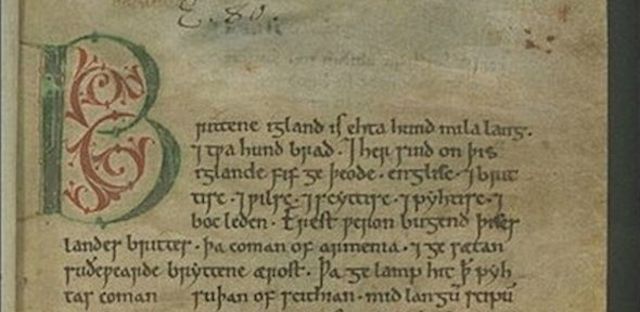 E. 80.
Brittene igland is ehta hund mila lang.
⁊ tƿa hund brad. ⁊ her sind on þis
iglande fif ge þeode. englisc. ⁊ brit
tisc. ⁊ ƿilsc. ⁊ scyttisc. ⁊ pyhtisc. ⁊
boc leden. Erest ƿeron bugend þises
landes brittes. þa coman of armenia. ⁊ ge sætan
suðeƿearde bryttene ærost. Þa ge lamp hit ꝥ pyh
tas coman suþan of scithian. mid langū scipū